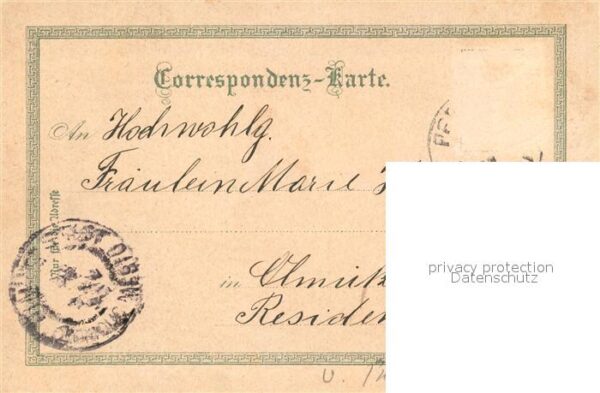 Correspondenz-Karte.
An Hochwohlg.
Fräulein Marie
Nur für die Adresse
in Olmütz
Residen
privacy protection
Datenschutz